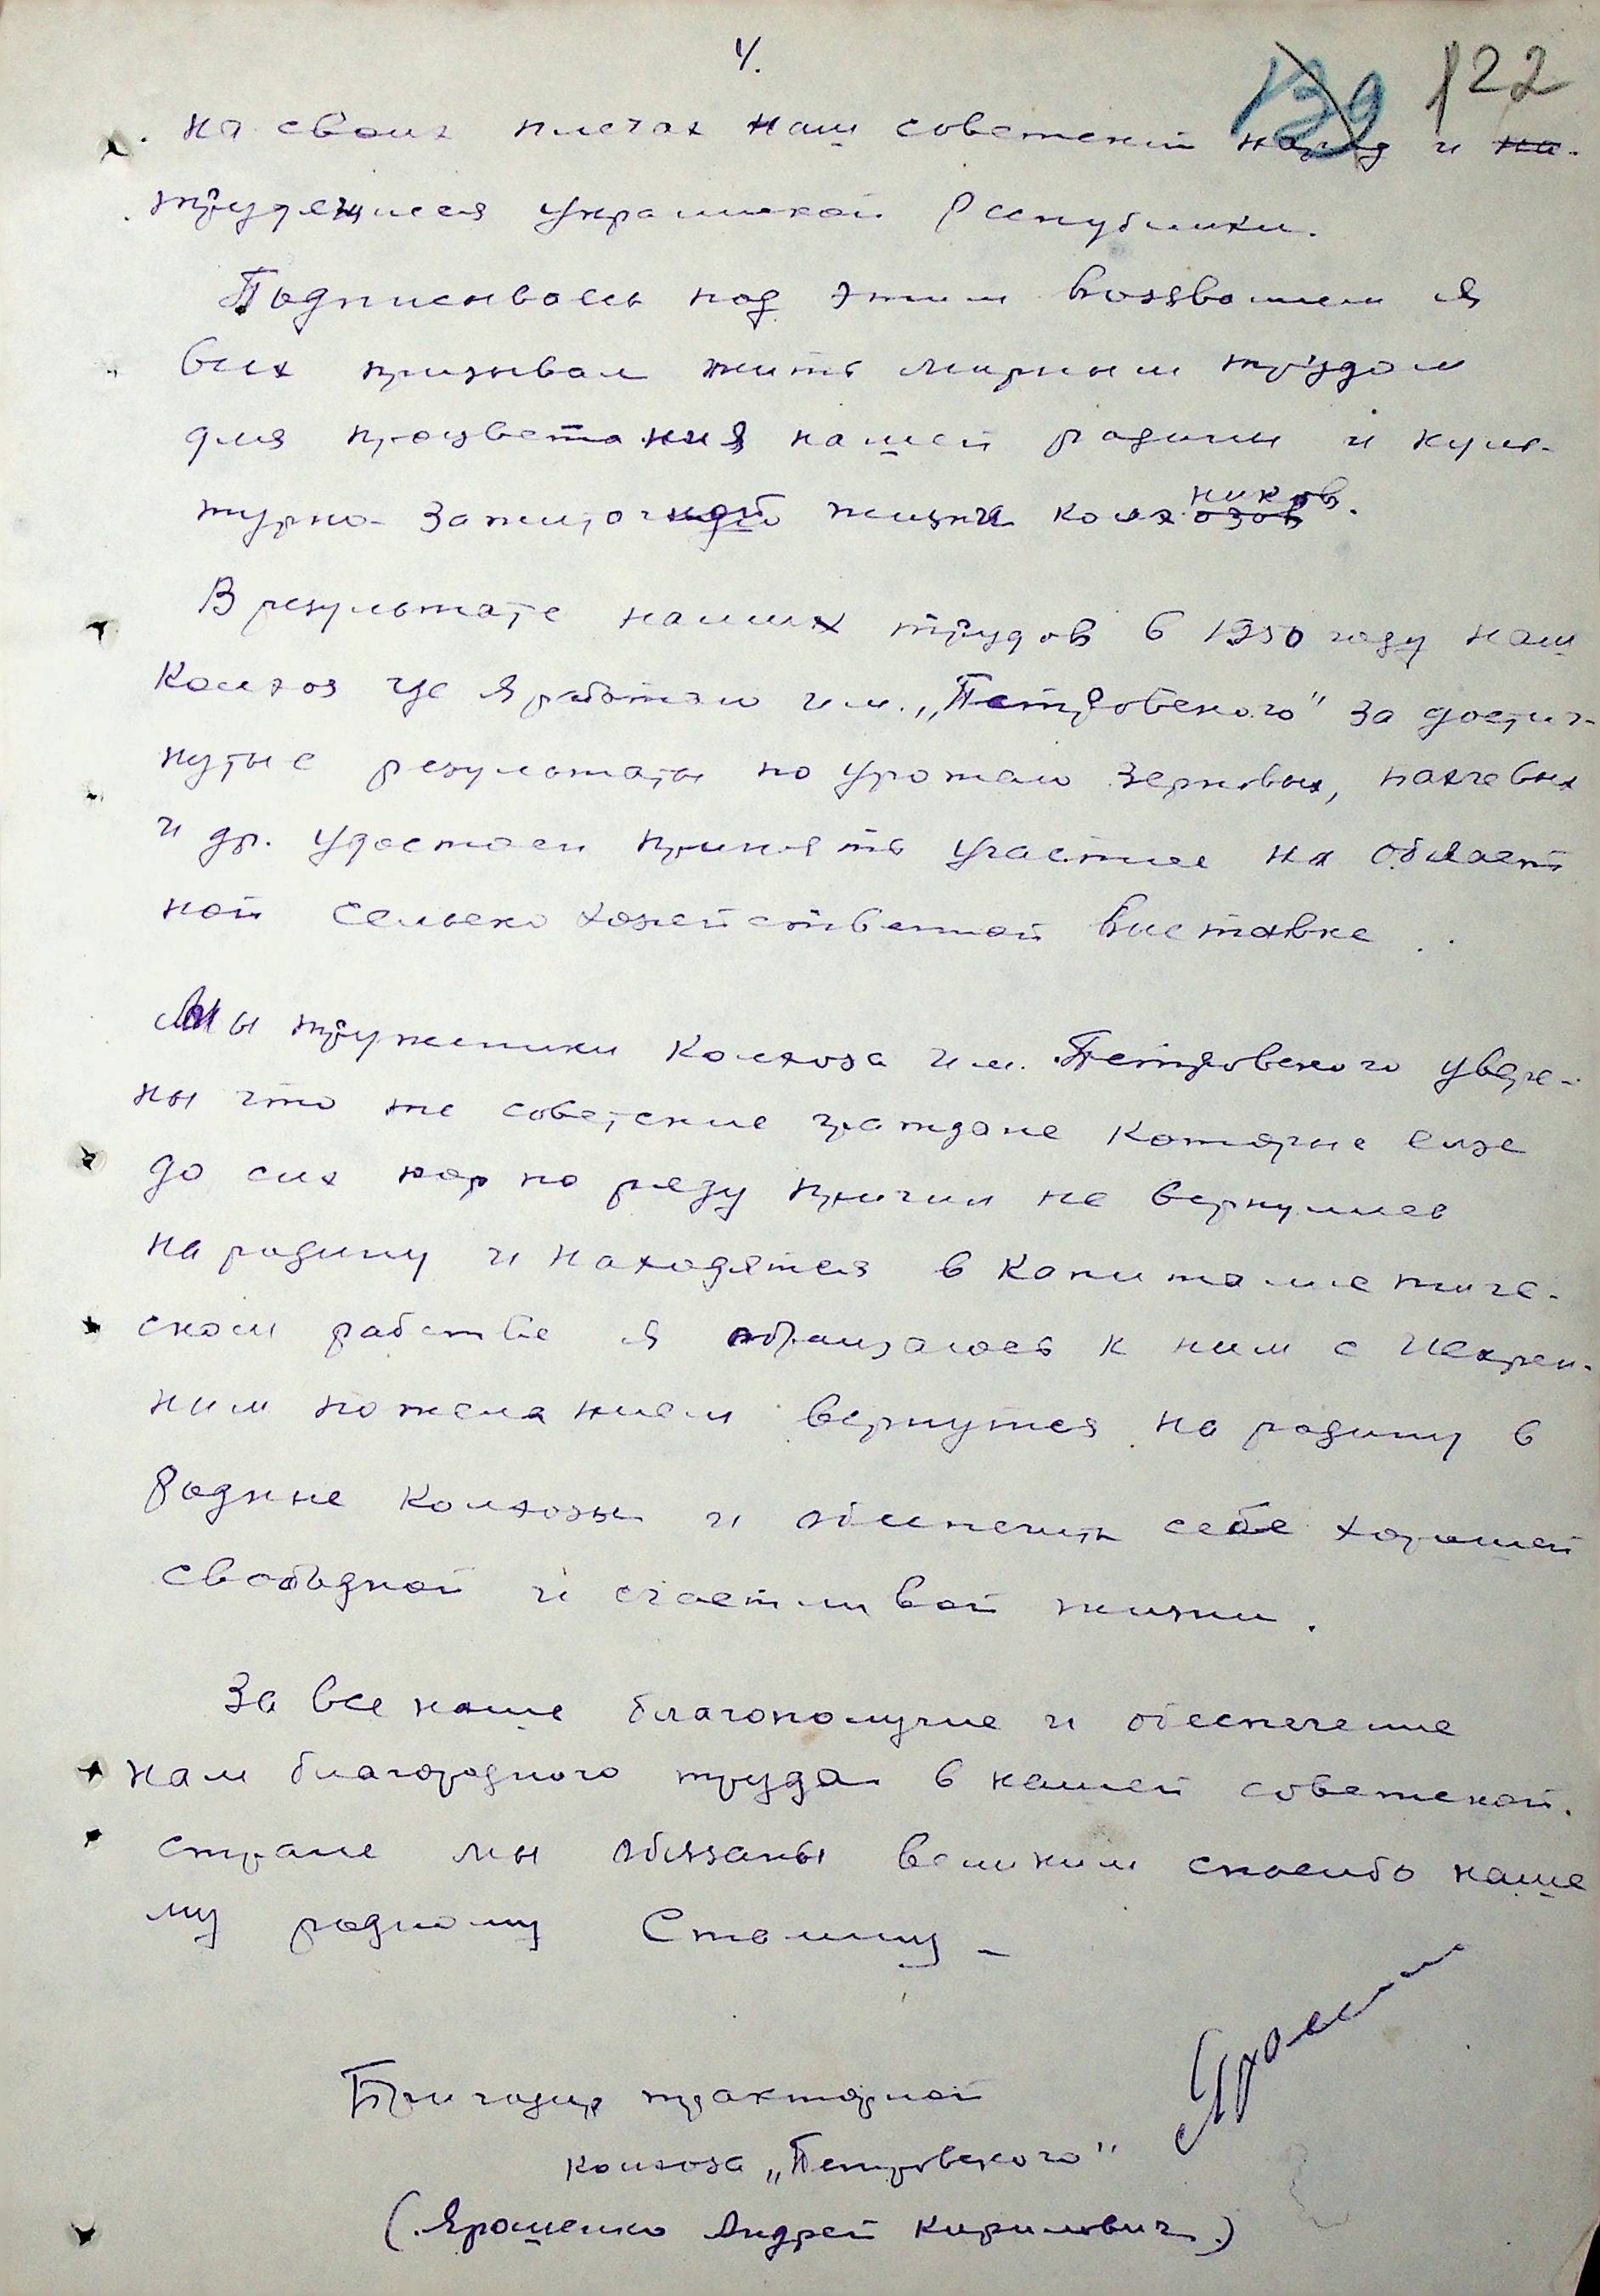 4.
139 122
на своих плечах наш советский народ и на-
трудящиеся украинской Республики.
Подписываясь под этим воззванием я
всех призываю жить мирным трудом
для процветания нашей родины и куль-
турно-зажиточной жизни колхозов ников.
В результате наших трудов в 1950 году наш
Колхоз где я работаю им. „Петровского" за достиг-
нутые результаты по урожаю зерновых, бахчевых
и др. удостоен принять участие на област
ной сельско хозяйственной выставке.
Мы труженики Колхоза им. Петровского увере-
ны что те советские граждане которые еще
до сих пор по ряду причин не вернулись
на родину и находятся в капиталистиче-
ском рабстве я обращаюсь к ним с искрен-
ним пожеланием вернутся на родину в
родные колхозы и обеспечить себе хорошей
свободной и счастливой жизни.
За все наше благополучие и обеспечение
нам благородного труда в нашей советской
стране мы обязаны великим спасибо наше
му родному Сталину –
Бригадир тракторной
колхоза „Петровского"
(Ярошенко Андрей Кирилович.)